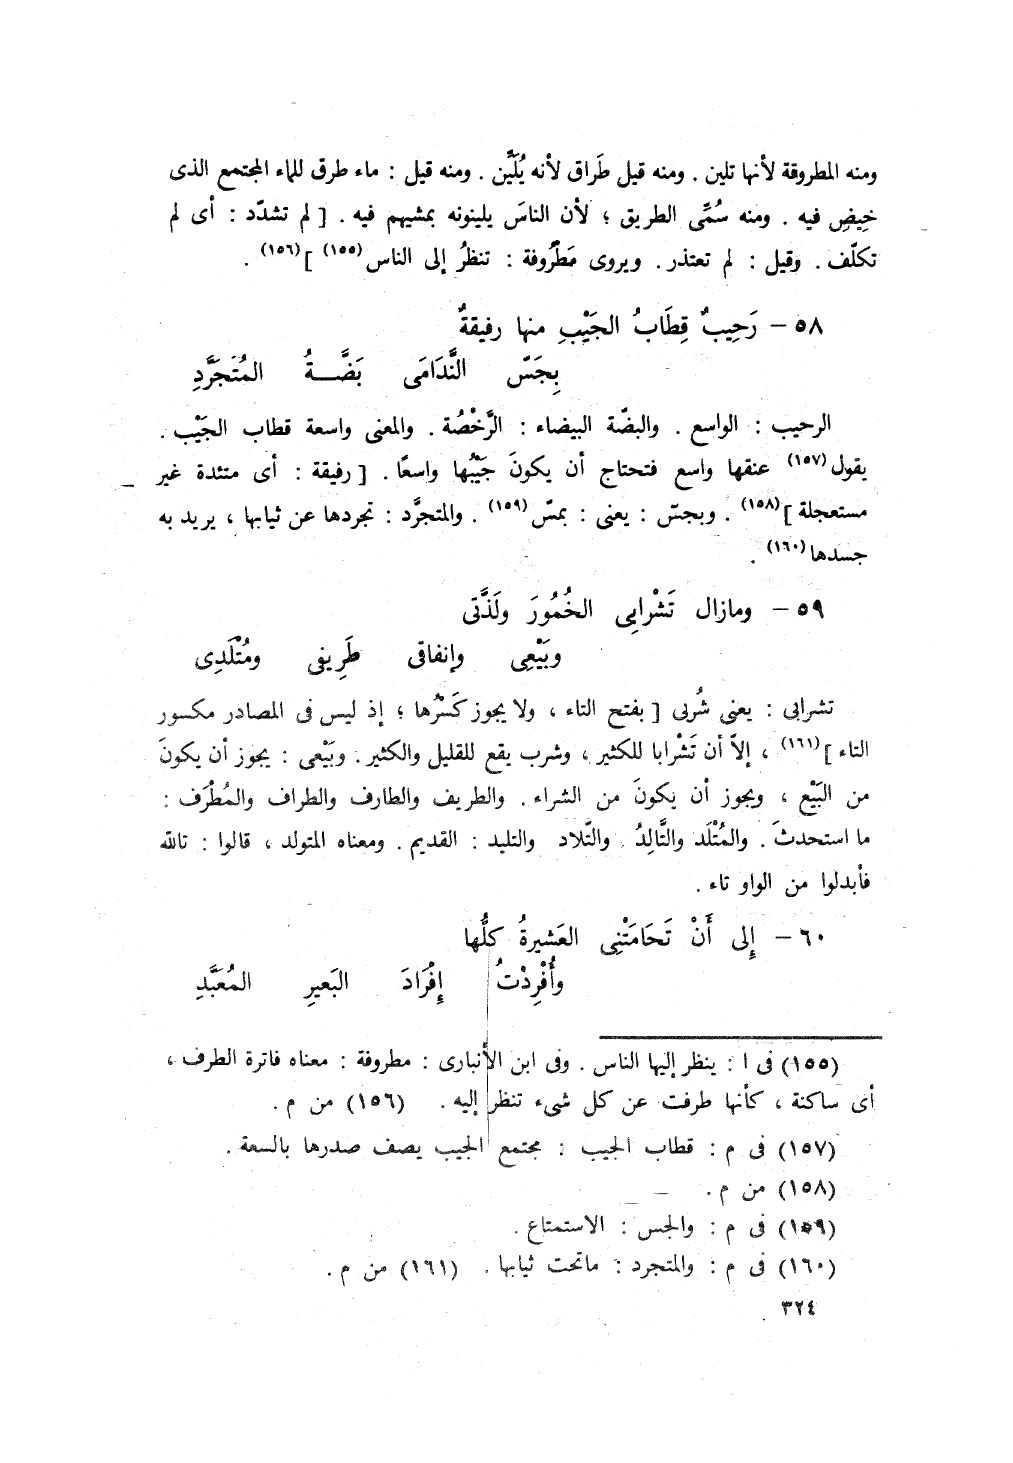 ومنه المطروقة لأنها تلين . ومنه قيل طَراق لأنه يُلَيَّن . ومنه قيل : ماء طرق للماء المجتمع الذى
خِيضِ فيه . ومنه سُمِّى الطريق ؛ لأن الناسَ يلينونه بمشيهم فيه . [ لم تشدّد : أى لم
تكلّف . وقيل : لم تعتذر . ويروى مَطْرُوفة : تنظرُ إلى الناس (١٥٥) ] (١٥٦) .
٥٨ – رَحِيبٌ قِطَابُ الجَيْبِ منها رفيقةٌ
بِجَسّ النَّدَامَى بَضَّــةُ المُتَجَرَّدِ
الرحيب : الواسع . والبضّة البيضاء : الرَّخْصُة . والمعنى واسعة قطاب الجَيْب .
يقول (١٥٧) عنقها واسع فتحتاج أن يكونَ جَيْبُها واسعًا . [ رفيقة : أى متئدة غير
مستعجلة ] (١٥٨) . وبجسّ : يعنى : بمسّ (١٥٩) . والمتجرَّد : تجردها عن ثيابها ، يريد به
جسدها (١٦٠) .
٥٩ – ومازال تَشْرابِى الخُمُورَ ولَذَّتى
وبَيْعِى وإنفاقى طَرِيفى ومُتْلَدِى
تشرابى : يعنى شُربى [ بفتح التاء ، ولا يجوز كَسْرُها ؛ إذ ليس فى المصادر مكسور
التاء ] (١٦١) ، إلاّ أن تَشْرابا للكثير ، وشرب يقع للقليل والكثير . وبَيْعى : يجوز أن يكونَ
من البَيْع ، ويجوز أن يكونَ من الشراء . والطريف والطارف والطراف والمُطْرَف :
ما استحدثَ . والمُتْلَد والتَّالِدُ والتِّلاد والتليد : القديم . ومعناه المتولد ، قالوا : تالله
فأبدلوا من الواو تاء .
٦٠ – إِلى أَنْ تَحَامَتْنِى العَشيرةُ كلُّها
وأُفْرِدْتُ إِفْرَادَ البَعيرِ المُعَبَّدِ
(١٥٥) فى ا : ينظر إليها الناس . وفى ابن الأنبارى : مطروفة : معناه فاترة الطرف ،
أى ساكنة ، كأنها طرفت عن كل شىء تنظر إليه . (١٥٦) من م .
(١٥٧) فى م : قطاب الجيب : مجتمع الجيب يصف صدرها بالسعة .
(١٥٨) من م .
(١٥٩) فى م : والجس : الاستمتاع .
(١٦٠) فى م : والمتجرد : ماتحت ثيابها . (١٦١) من م .
٣٢٤